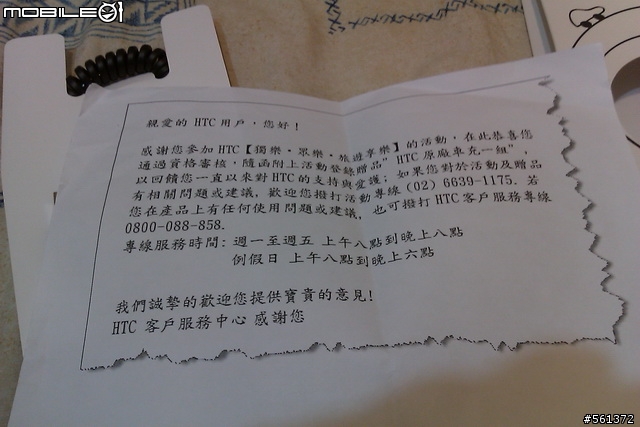 MOBILE01
親愛的 HTC 用戶，您好！
感謝您參加 HTC【獨樂‧眾樂‧旅遊享樂】的活動，在此恭喜您
通過資格審核，隨函附上活動登錄贈品"HTC 原廠車充一組"，
以回饋您一直以來對 HTC 的支持與愛護；如果您對於活動及贈品
有相關問題或建議，歡迎您撥打活動專線 (02) 6639-1175. 若
您在產品上有任何使用問題或建議，也可撥打 HTC 客戶服務專線
0800-088-858.
專線服務時間: 週一至週五 上午八點到晚上八點
例假日 上午八點到晚上六點
我們誠摯的歡迎您提供寶貴的意見!
HTC 客戶服務中心 感謝您
#561372